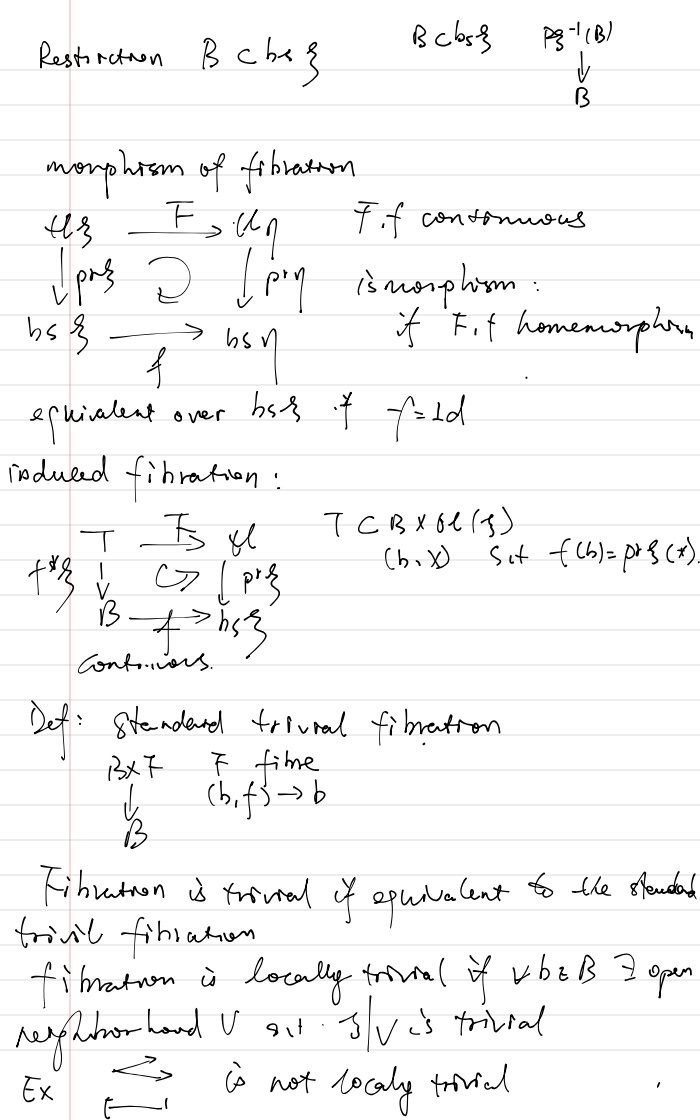 Restriction B ⊂ bs ξ B ⊂ bs ξ pξ⁻¹(B)
↓
B
morphism of fibration
tl ξ F→ tl η F, f continuous
↓ prξ ↓ prη ismorphism:
bs ξ f→ bs η if F, f homemorphism
equivalent over bs ξ if f = Id
induced fibration:
T F→ tl T ⊂ B × tl(ξ)
f*ξ ↓ ↓ prξ (b, x) s.t f(b) = prξ(x).
B f→ bs ξ
continuous.
Def: standard trivial fibration
B×F F fibre
↓ (b, f) → b
B
Fibration is trivial if equivalent to the standard
trivil fibration
fibration is locally trivial if ∀ b ∈ B ∃ open
neighborhood U s.t. ξ|U is trivial
Ex is not localy trivial